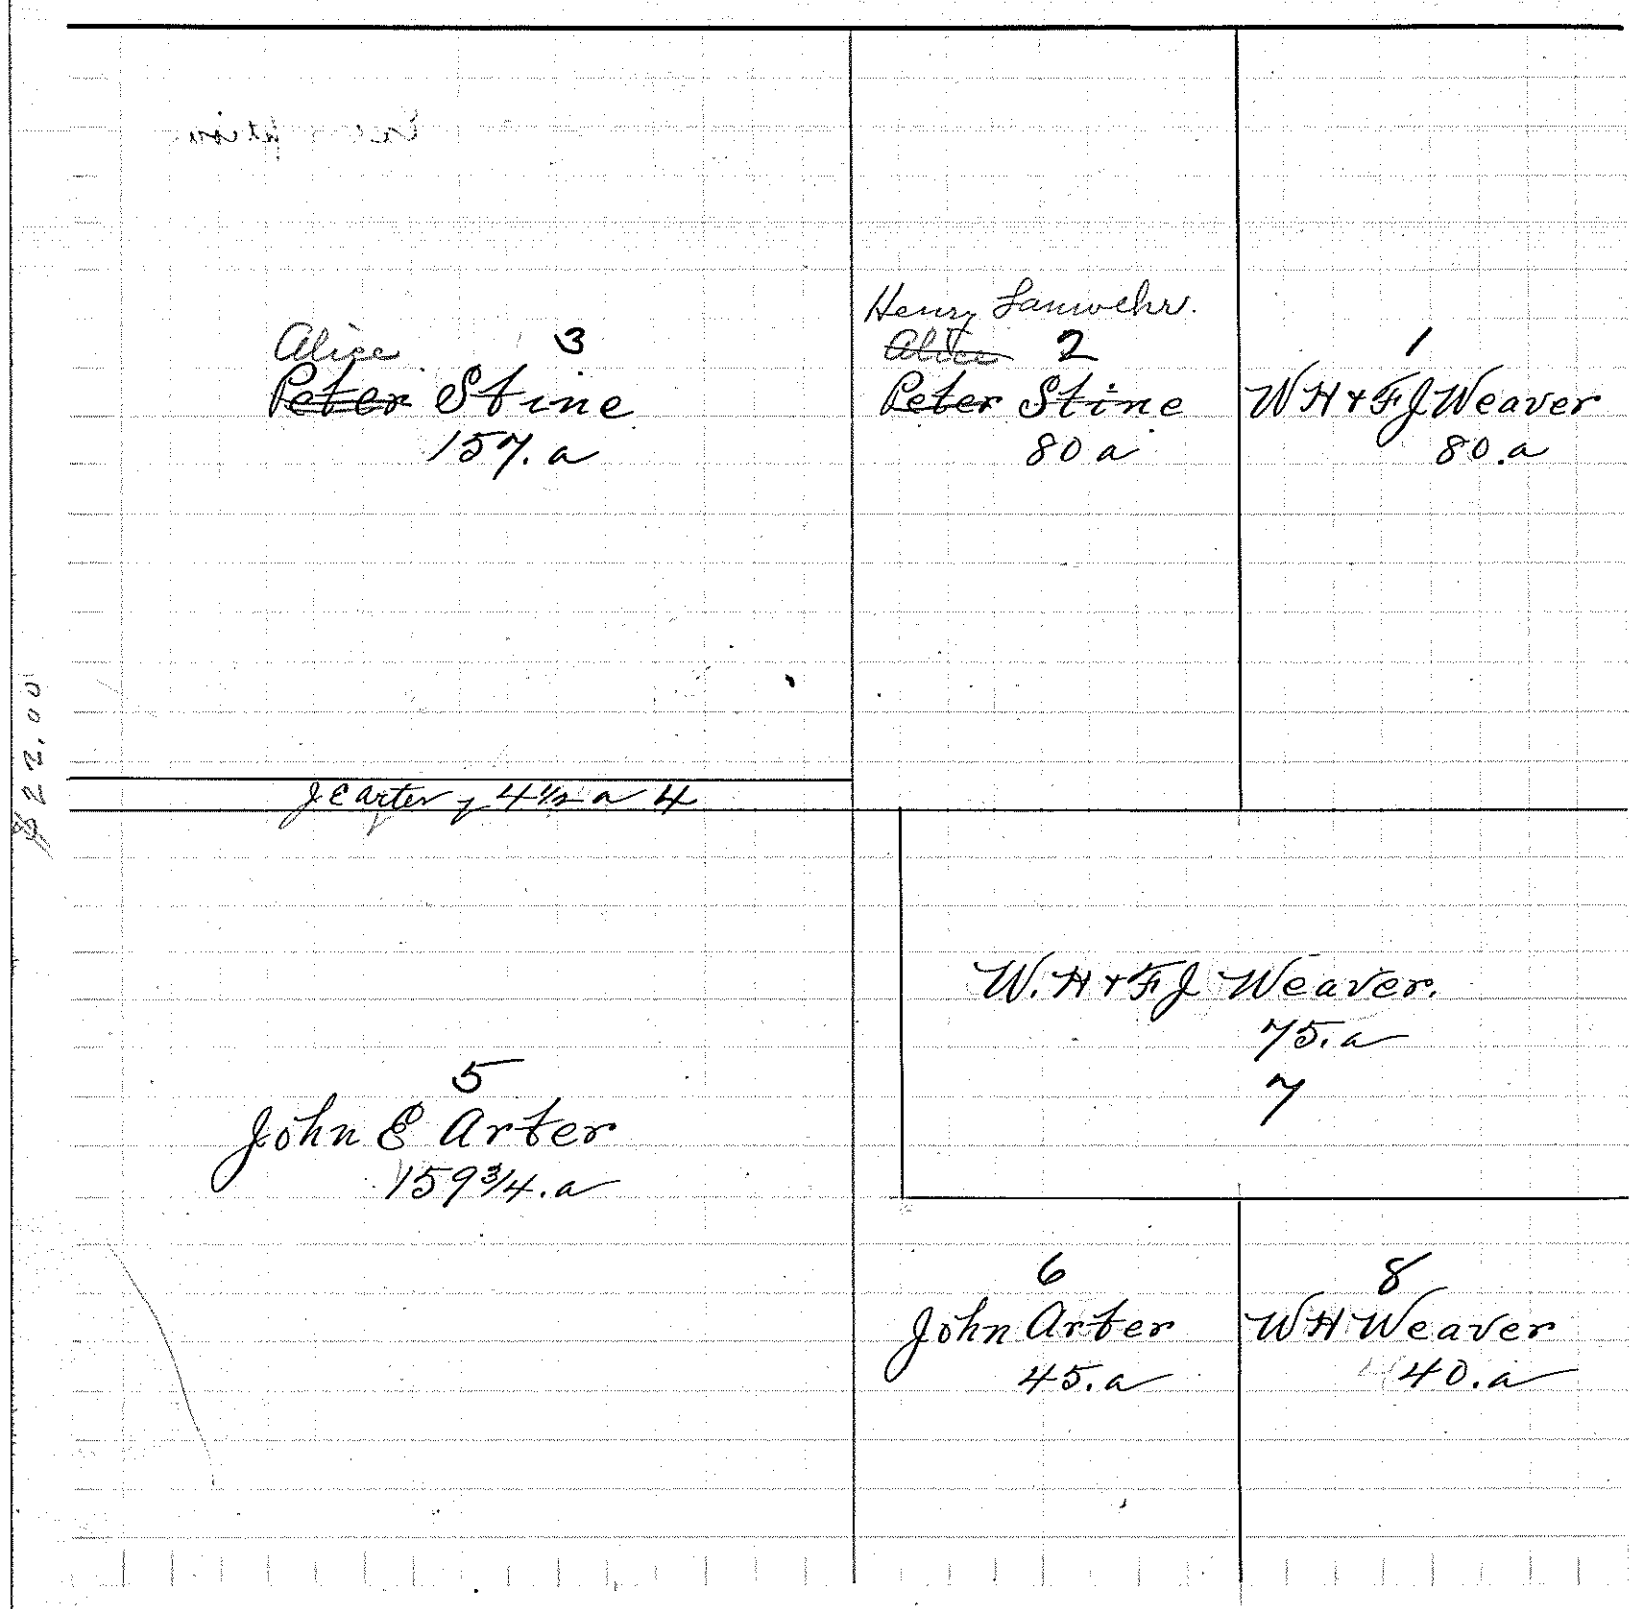 Alice 3
Peter Stine
157. a
Henry Lanwehr.
Alice 2
Peter Stine
80 a
1
W H & F J Weaver
80. a
$22.00
J E Arter 4 1/2 a 4
W. H & F J Weaver.
75. a
7
5
John E Arter
159 3/4. a
6
John Arter
45. a
8
W H Weaver
40. a